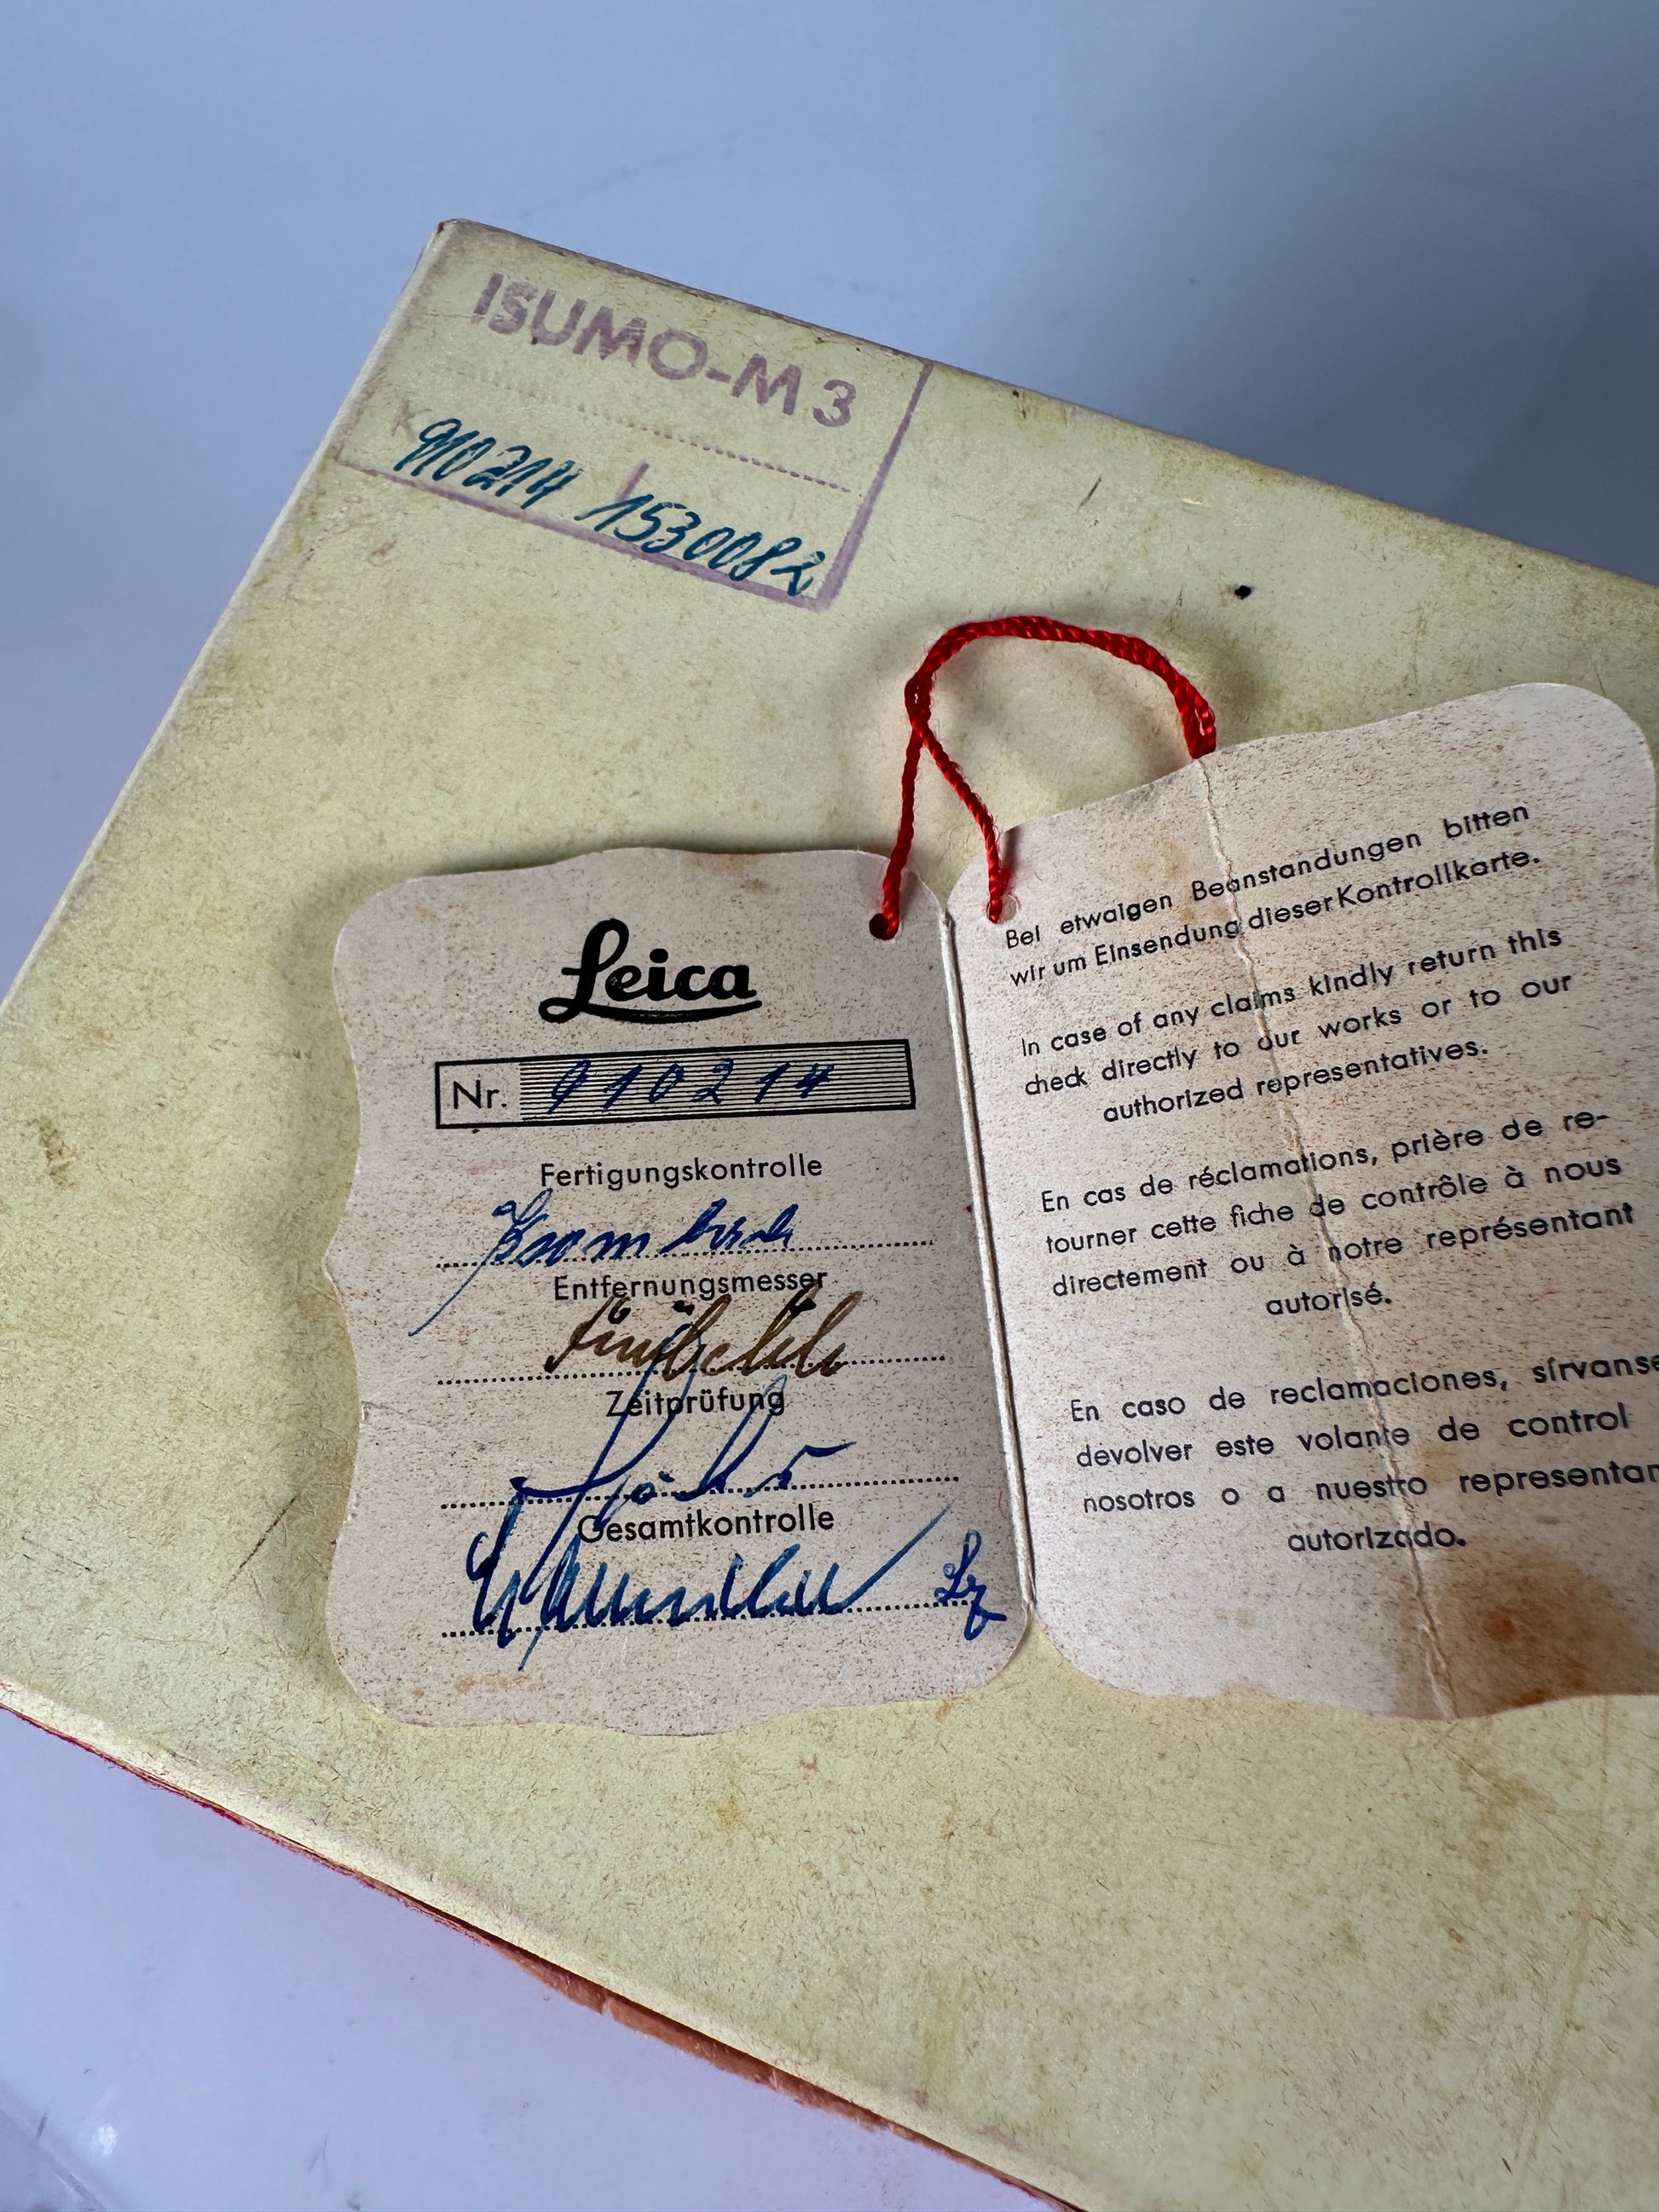 ISUMO-M3
910214 1530082
Leica
Nr. 910214
Fertigungskontrolle
Entfernungsmesser
Zeitprüfung
Gesamtkontrolle
Bei etwaigen Beanstandungen bitten
wir um Einsendung dieser Kontrollkarte.
In case of any claims kindly return this
check directly to our works or to our
authorized representatives.
En cas de réclamations, prière de re-
tourner cette fiche de contrôle à nous
directement ou à notre représentant
autorisé.
En caso de reclamaciones, sírvanse
devolver este volante de control
nosotros o a nuestro representan
autorizado.